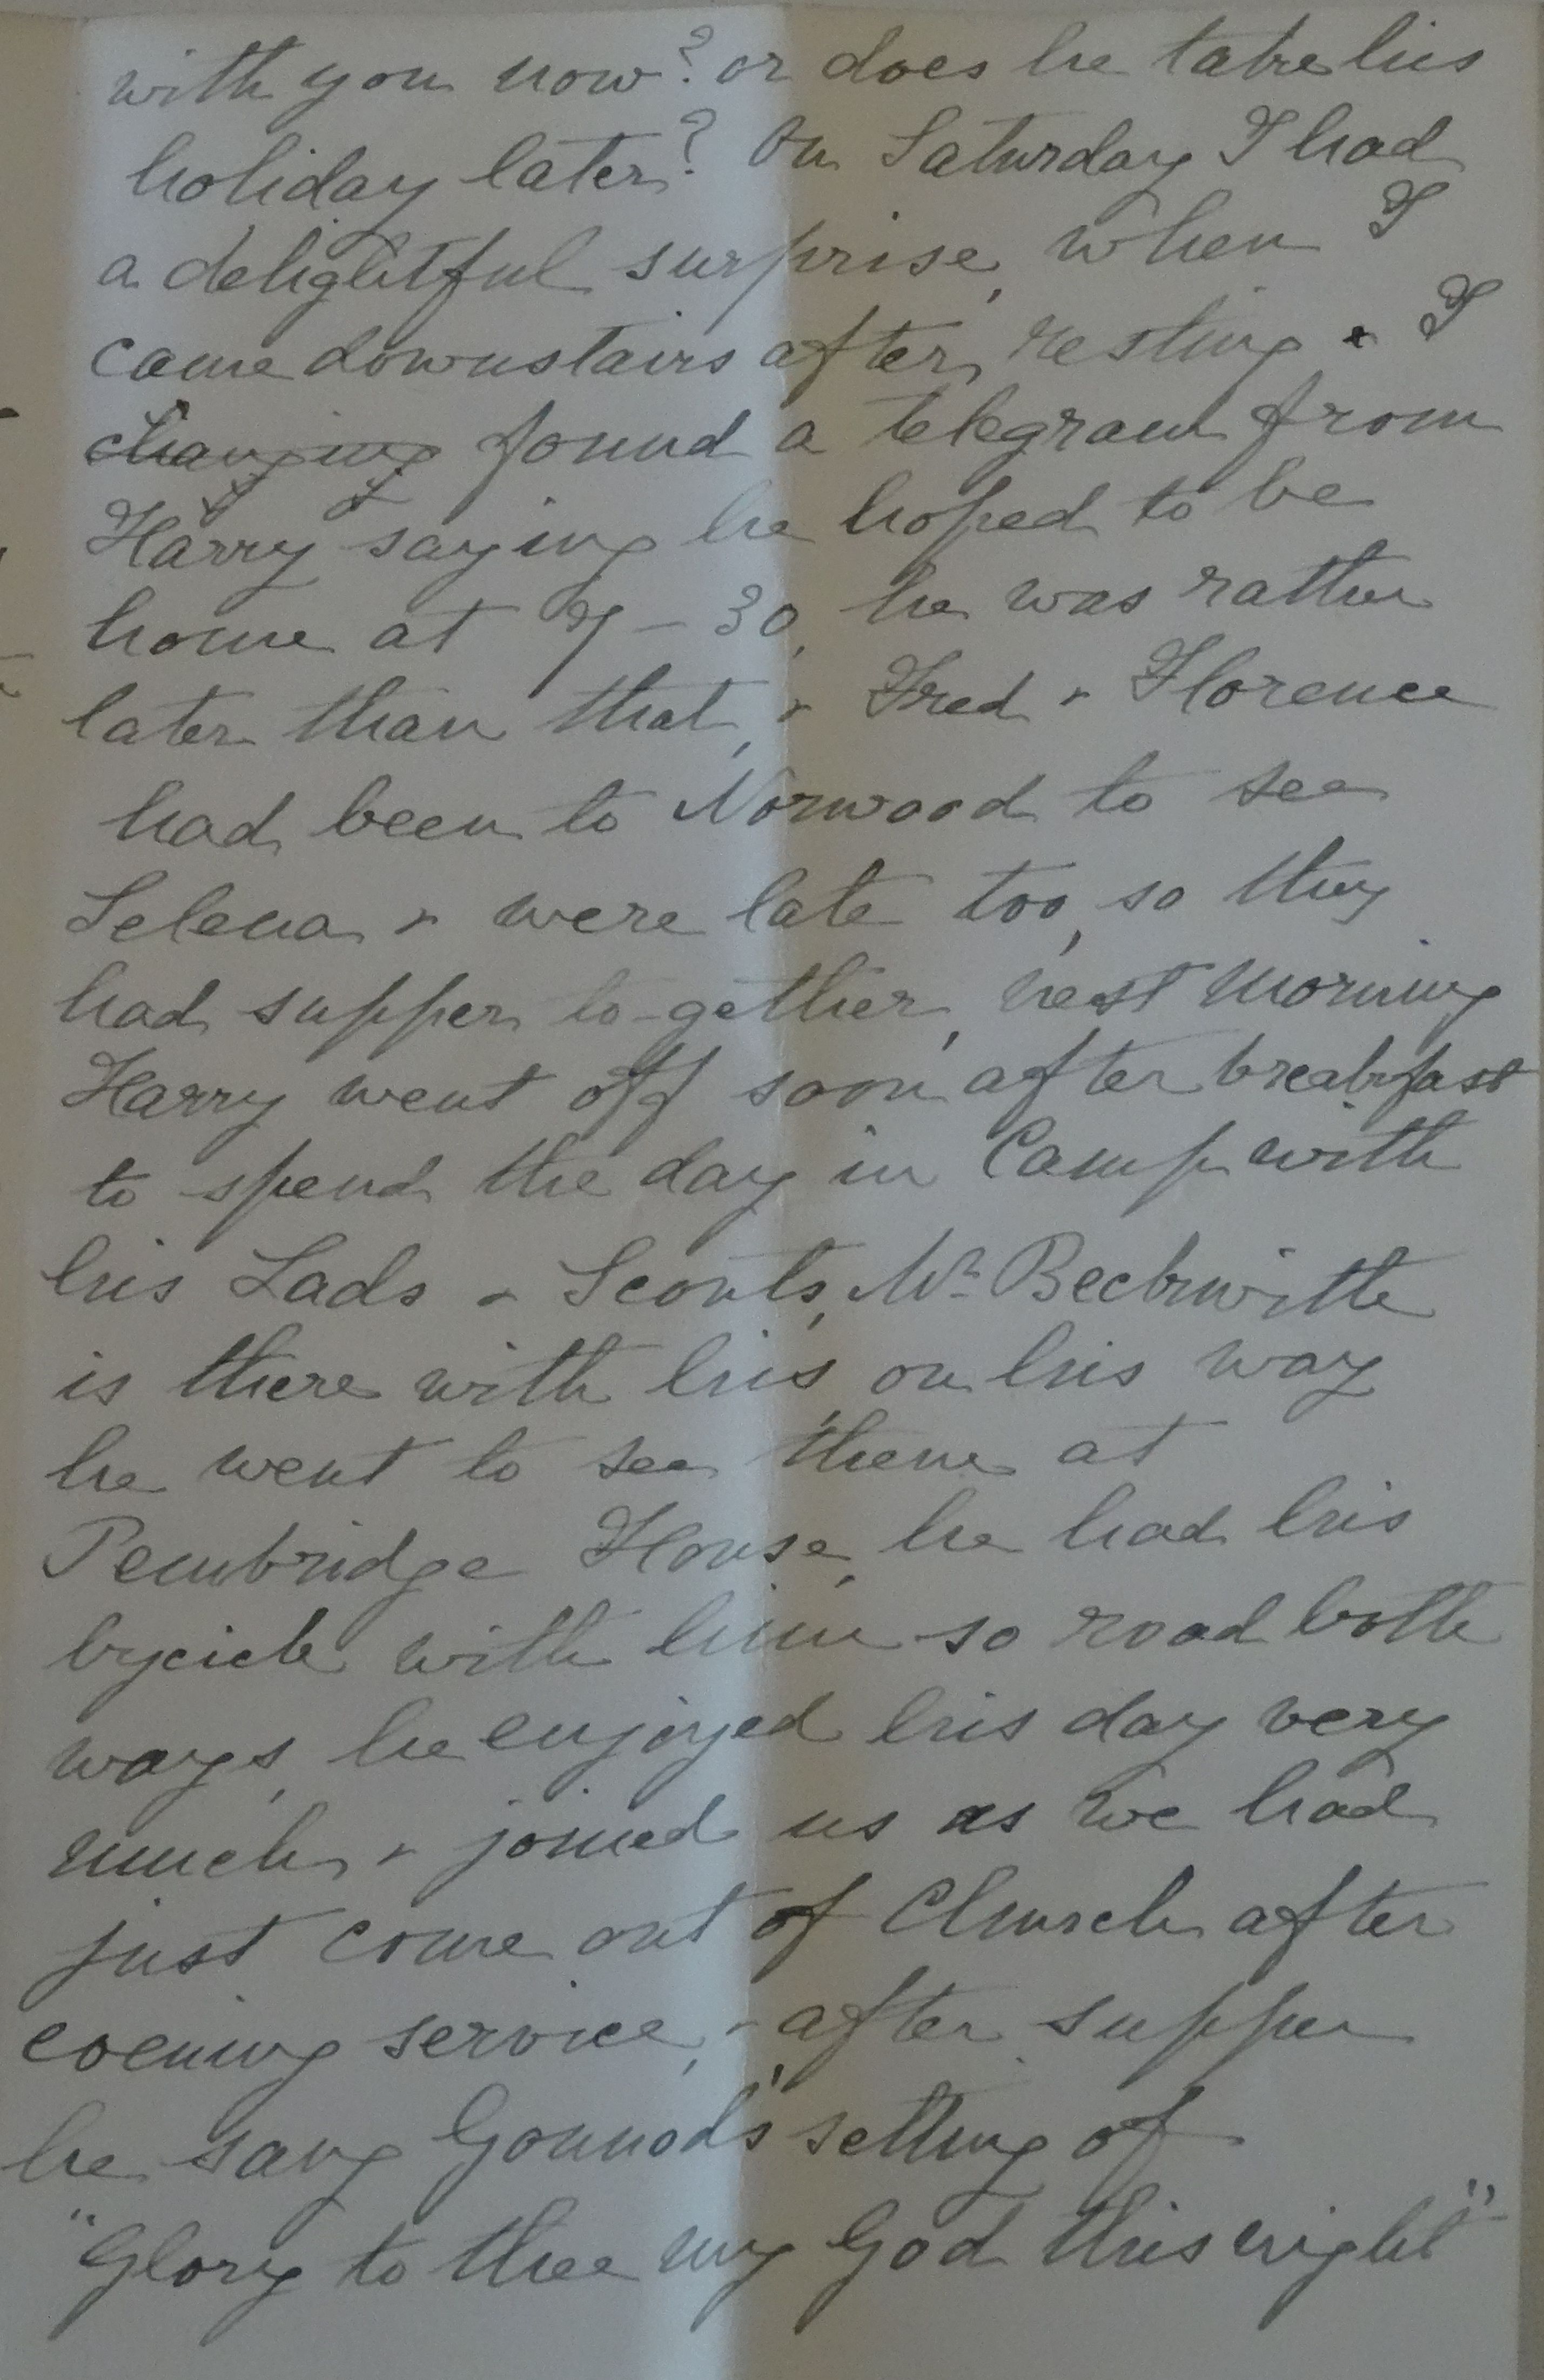 with you now? or does he take his
holiday later? On Saturday I had
a delightful surprise, when I
came downstairs after resting & I
changing found a telegram from
Harry saying he hoped to be
home at 7-30, he was rather
later than that, & Fred & Florence
had been to Norwood to see
Selena & were late too, so they
had supper to-gether, next morning
Harry went off soon after breakfast
to spend the day in Camp with
his Lads & Scouts, Mr Beckwith
is there with his, on his way
he went to see them at
Pembridge House, he had his
bycicle with him so road both
ways, he enjoyed his day very
much, & joined us as we had
just come out of Church after
evening service, & after supper
he sang Gounod's setting of
"Glory to thee my God this night"